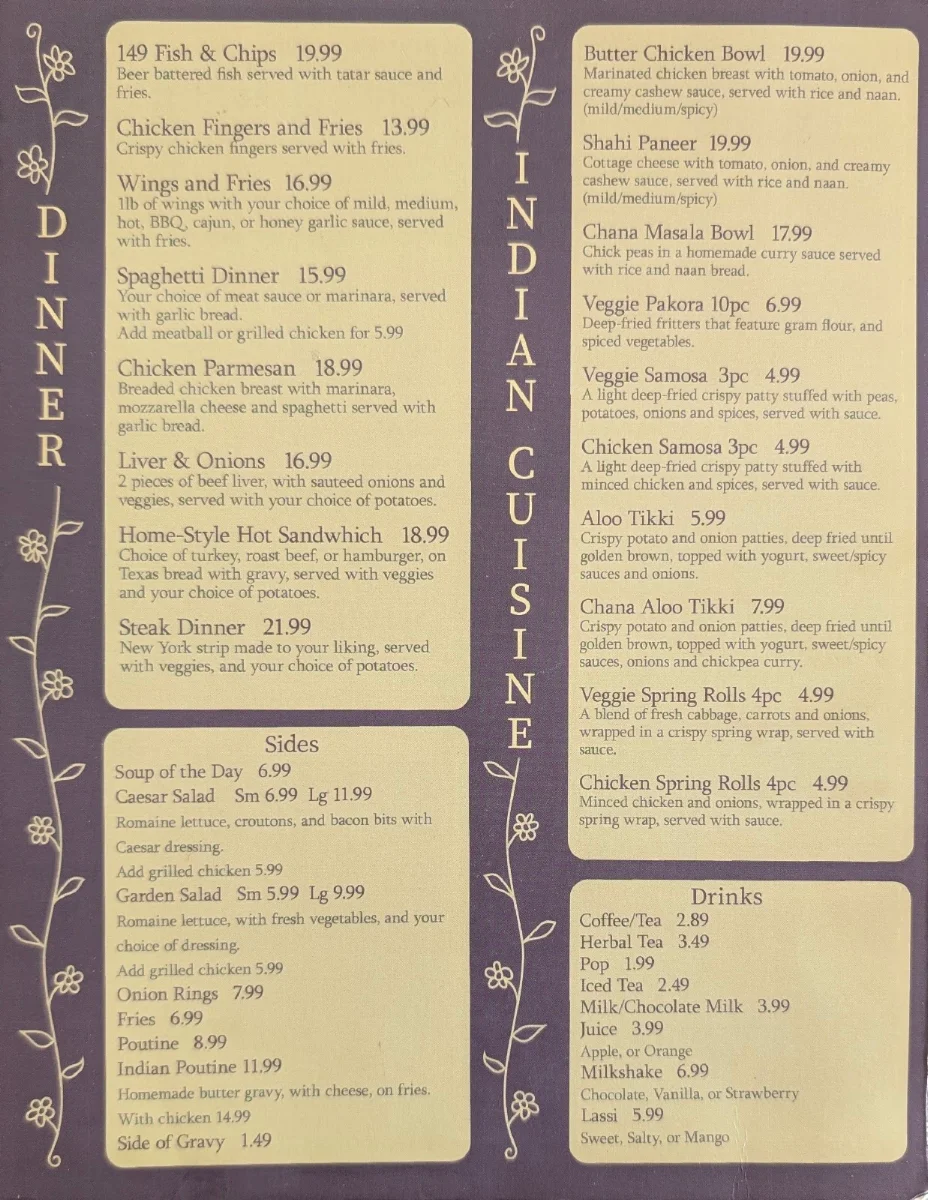 DINNER
149 Fish & Chips 19.99
Beer battered fish served with tatar sauce and
fries.
Chicken Fingers and Fries 13.99
Crispy chicken fingers served with fries.
Wings and Fries 16.99
1lb of wings with your choice of mild, medium,
hot, BBQ, cajun, or honey garlic sauce, served
with fries.
Spaghetti Dinner 15.99
Your choice of meat sauce or marinara, served
with garlic bread.
Add meatball or grilled chicken for 5.99
Chicken Parmesan 18.99
Breaded chicken breast with marinara,
mozzarella cheese and spaghetti served with
garlic bread.
Liver & Onions 16.99
2 pieces of beef liver, with sauteed onions and
veggies, served with your choice of potatoes.
Home-Style Hot Sandwhich 18.99
Choice of turkey, roast beef, or hamburger, on
Texas bread with gravy, served with veggies
and your choice of potatoes.
Steak Dinner 21.99
New York strip made to your liking, served
with veggies, and your choice of potatoes.
Sides
Soup of the Day 6.99
Caesar Salad Sm 6.99 Lg 11.99
Romaine lettuce, croutons, and bacon bits with
Caesar dressing.
Add grilled chicken 5.99
Garden Salad Sm 5.99 Lg 9.99
Romaine lettuce, with fresh vegetables, and your
choice of dressing.
Add grilled chicken 5.99
Onion Rings 7.99
Fries 6.99
Poutine 8.99
Indian Poutine 11.99
Homemade butter gravy, with cheese, on fries.
With chicken 14.99
Side of Gravy 1.49
INDIAN CUISINE
Butter Chicken Bowl 19.99
Marinated chicken breast with tomato, onion, and
creamy cashew sauce, served with rice and naan.
(mild/medium/spicy)
Shahi Paneer 19.99
Cottage cheese with tomato, onion, and creamy
cashew sauce, served with rice and naan.
(mild/medium/spicy)
Chana Masala Bowl 17.99
Chick peas in a homemade curry sauce served
with rice and naan bread.
Veggie Pakora 10pc 6.99
Deep-fried fritters that feature gram flour, and
spiced vegetables.
Veggie Samosa 3pc 4.99
A light deep-fried crispy patty stuffed with peas,
potatoes, onions and spices, served with sauce.
Chicken Samosa 3pc 4.99
A light deep-fried crispy patty stuffed with
minced chicken and spices, served with sauce.
Aloo Tikki 5.99
Crispy potato and onion patties, deep fried until
golden brown, topped with yogurt, sweet/spicy
sauces and onions.
Chana Aloo Tikki 7.99
Crispy potato and onion patties, deep fried until
golden brown, topped with yogurt, sweet/spicy
sauces, onions and chickpea curry.
Veggie Spring Rolls 4pc 4.99
A blend of fresh cabbage, carrots and onions,
wrapped in a crispy spring wrap, served with
sauce.
Chicken Spring Rolls 4pc 4.99
Minced chicken and onions, wrapped in a crispy
spring wrap, served with sauce.
Drinks
Coffee/Tea 2.89
Herbal Tea 3.49
Pop 1.99
Iced Tea 2.49
Milk/Chocolate Milk 3.99
Juice 3.99
Apple, or Orange
Milkshake 6.99
Chocolate, Vanilla, or Strawberry
Lassi 5.99
Sweet, Salty, or Mango